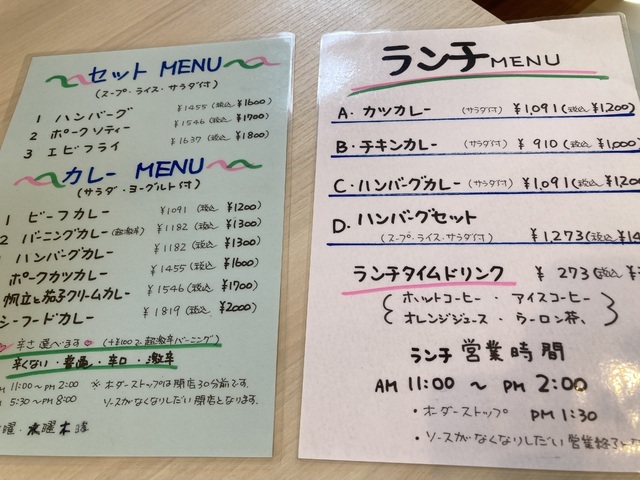 セット MENU
(スープ・ライス・サラダ付)
1 ハンバーグ ¥1455 (税込 ¥1600)
2 ポークソティー ¥1546 (税込 ¥1700)
3 エビフライ ¥1637 (税込 ¥1800)
カレー MENU
(サラダ・ヨーグルト付)
1 ビーフカレー ¥1091 (税込 ¥1200)
2 バーニングカレー(超激辛) ¥1182 (税込 ¥1300)
ハンバーグカレー ¥1182 (税込 ¥1300)
ポークカツカレー ¥1455 (税込 ¥1600)
帆立と茄子クリームカレー ¥1546 (税込 ¥1700)
シーフードカレー ¥1819 (税込 ¥2000)
辛さ選べます (+¥100で超激辛バーニング)
辛くない・普通・辛口・激辛
AM 11:00 ~ PM 2:00 ※オーダーストップは閉店30分前です。
PM 5:30 ~ PM 8:00 ソースがなくなりしだい閉店となります。
曜・水曜 木曜
ランチ MENU
A. カツカレー (サラダ付) ¥1,091 (税込 ¥1200)
B. チキンカレー (サラダ付) ¥910 (税込 ¥1,000)
C. ハンバーグカレー (サラダ付) ¥1,091 (税込 ¥1200
D. ハンバーグセット
(スープ・ライス・サラダ付) ¥1,273 (税込 ¥14
ランチタイムドリンク ¥273 (税込
ホットコーヒー・アイスコーヒー
オレンジジュース・ウーロン茶、
ランチ 営業時間
AM 11:00 ~ PM 2:00
・オーダーストップ PM 1:30
・ソースがなくなりしだい 営業終了とな